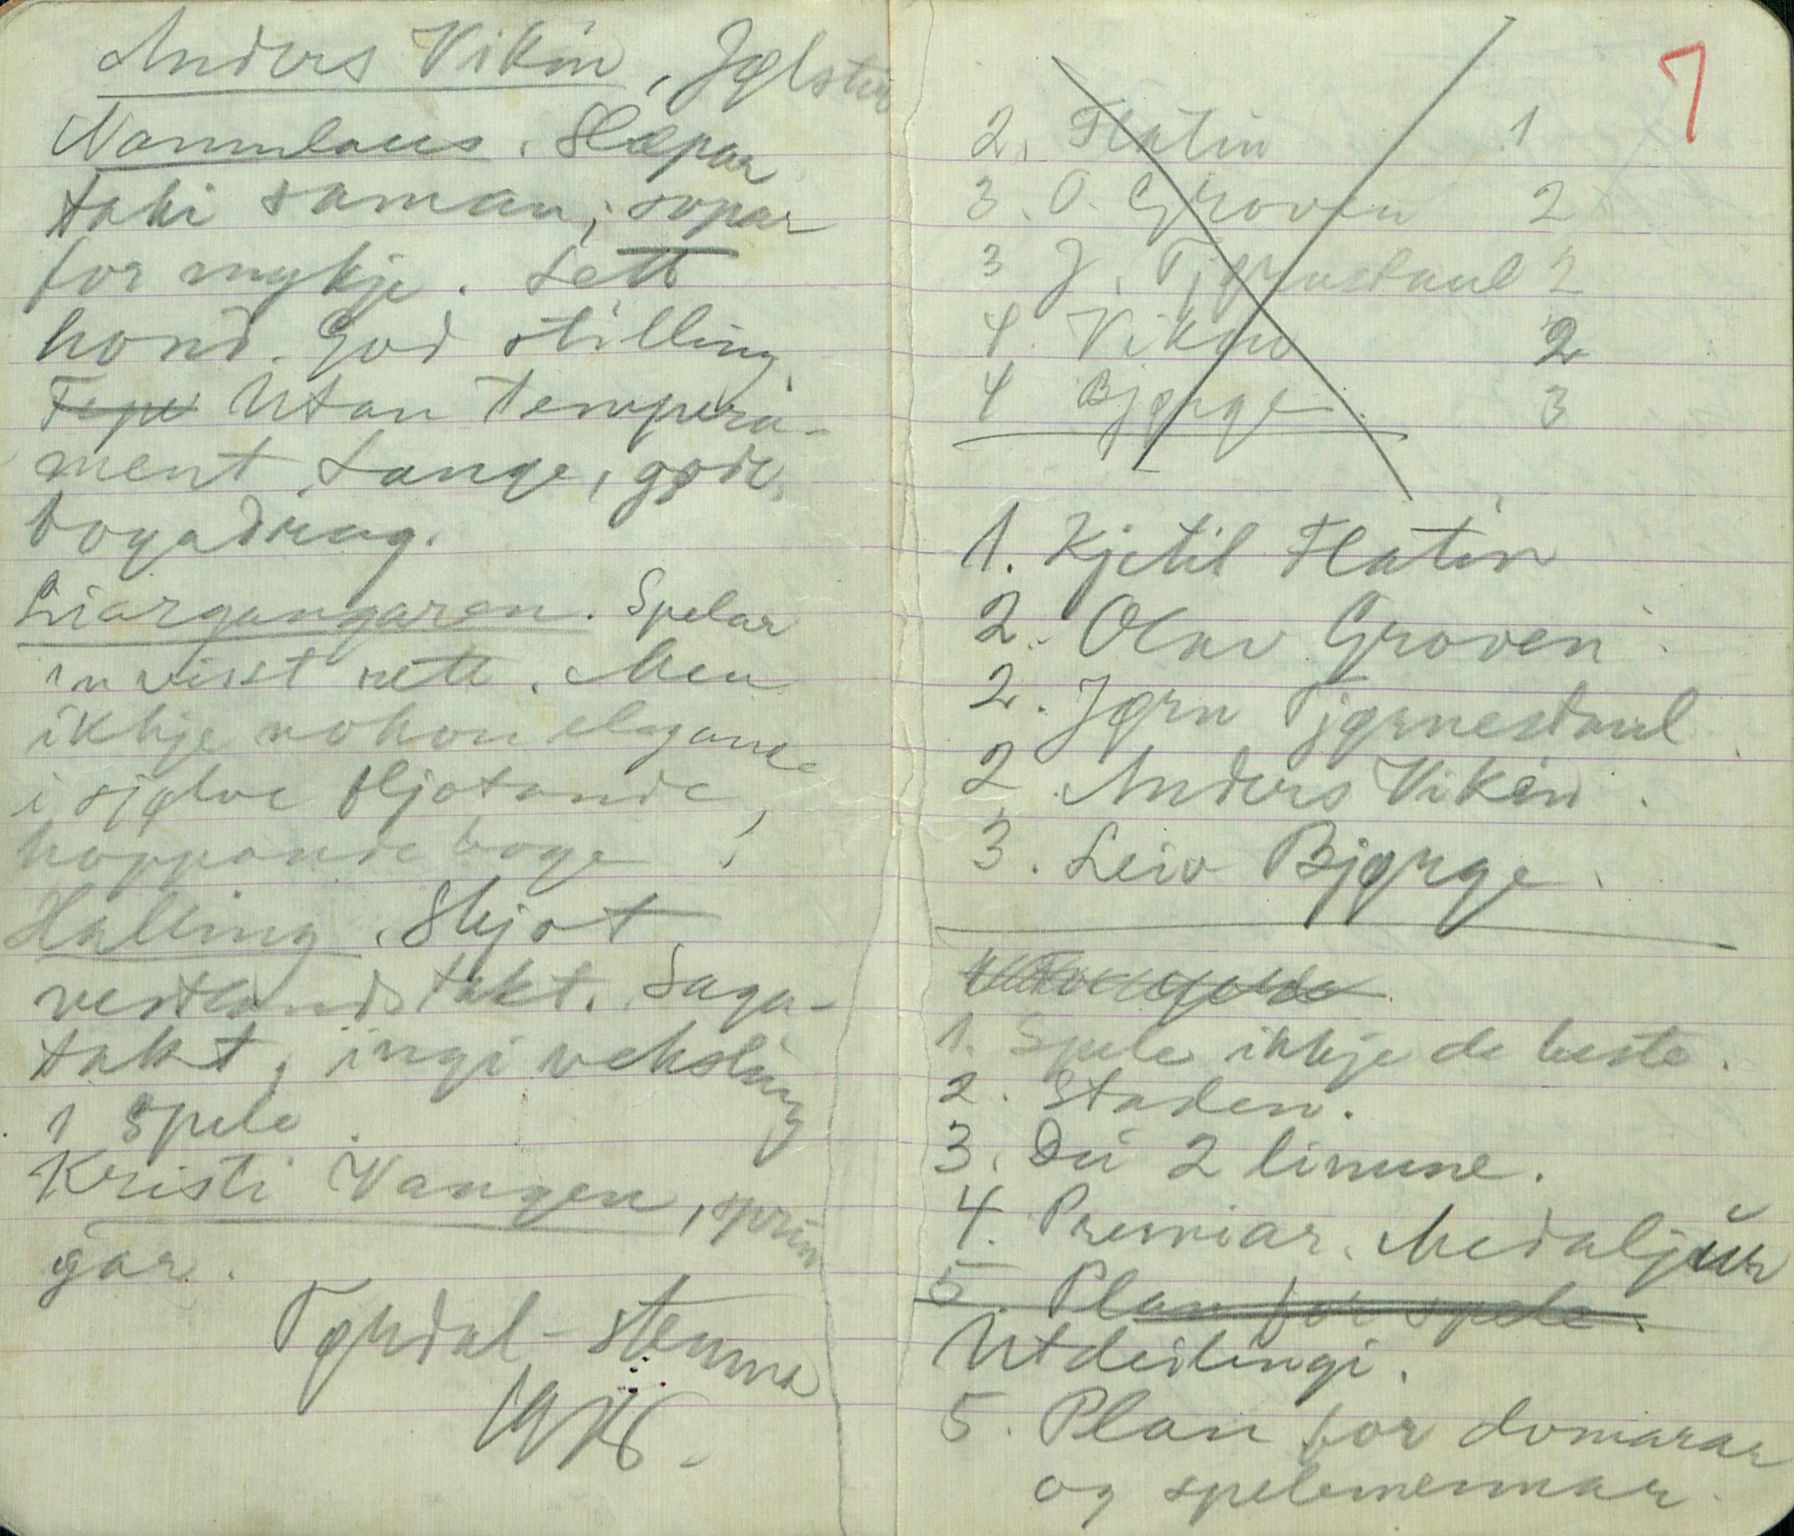 Anders Vikèn, Jølster
Namnlaus. Slæpar
taki saman; sopar
for mykje. Lett
hond. God stilling
Fepe Utan tempera-
ment Lange, gode
bogadrag.
Liargangaren. Spelar
en visst rett. Men
ikkje nokon elegance
i sjølve fljotande,
hoppande boge
Halling. Skjot
vestlandstakt. Saga-
takt, ingi veksling
i spele.
Kristi Vangen, sprin
gar.
Tørdal-stemma
7
2. Flatin 1
3. O. Groven 2
3 J. Tjørnestaul 2
4. Vikèn 2
4 Bjørge 3
1. Kjetil Flatin
2. Olav Groven
2. Jørn Tjørnestaul
2 Anders Vikèn.
3. Leiv Bjørge.
1. Spele ikkje de beste.
2. Staden.
3. Dei 2 linune.
4. Premiar. Medaljur
5. Plan for spele.
Utdeilingi.
5. Plan for domarar
og spelemennar.